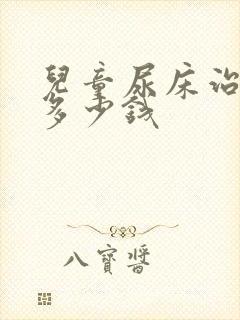 兒童尿床治
多少錢
八寶醬